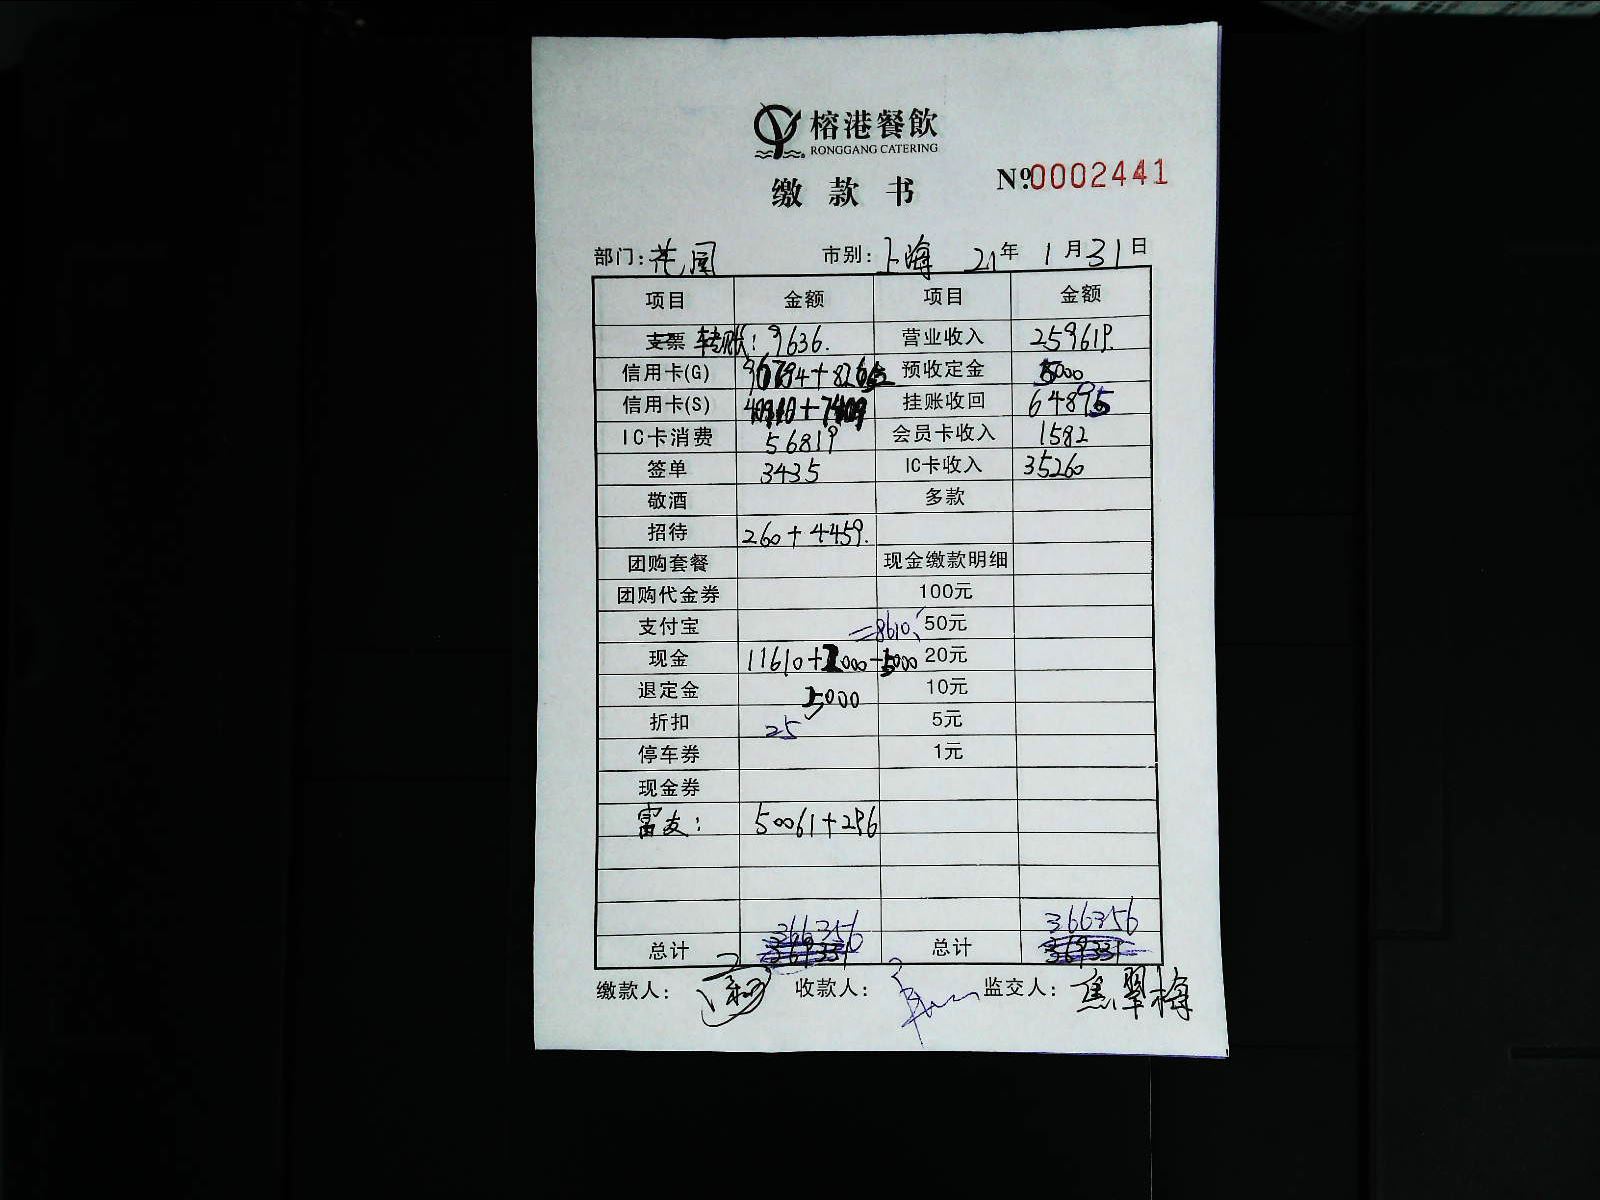 榕港餐飲
RONGGANG CATERING
缴款书
Nº.0002441
部门: 花园 市别: 上海 21年 1月31日
项目 金额 项目 金额
支票 转账: 9636. 营业收入 259619.
信用卡(G) 预收定金 5000
信用卡(S) 挂账收回 64895
IC卡消费 56819 会员卡收入 1582
签单 3435 IC卡收入 35260
敬酒 多款
招待 260+4459.
团购套餐 现金缴款明细
团购代金券 100元
支付宝 =8610 50元
现金 11610+2000-5000 20元
退定金 5000 10元
折扣 25 5元
停车券 1元
现金券
富友: 50061+296
366356 366356
总计 总计
缴款人: 收款人: 监交人: 焦翠梅